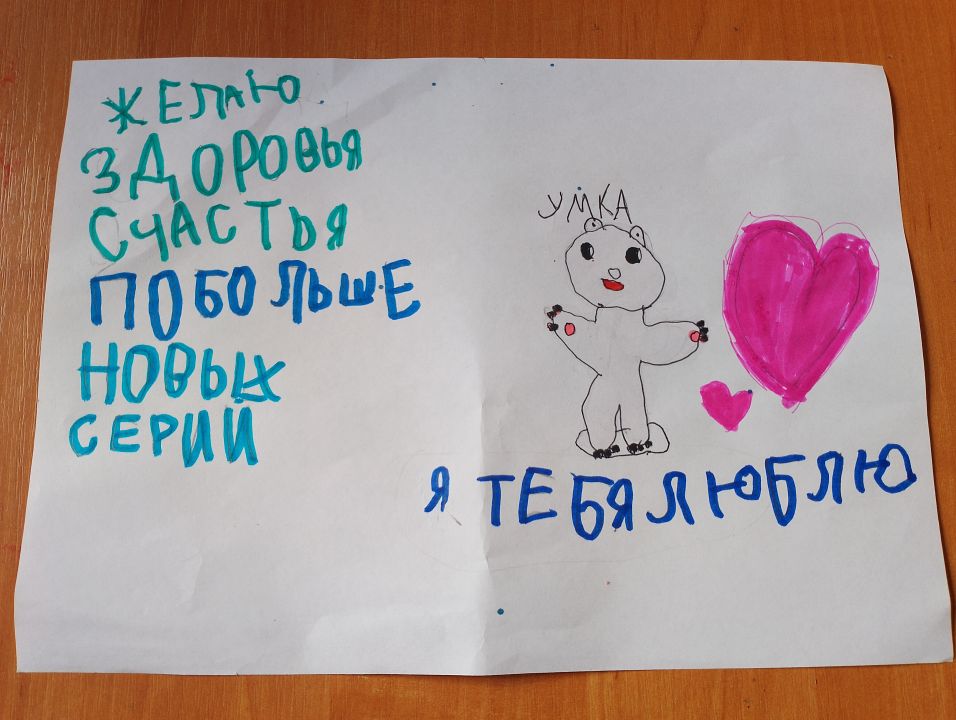 ЖЕЛАЮ
ЗДОРОВЬЯ
СЧАСТЬЯ
ПОБОЛЬШЕ
НОВЫХ
СЕРИЙ
УМКА
Я ТЕБЯ ЛЮБЛЮ